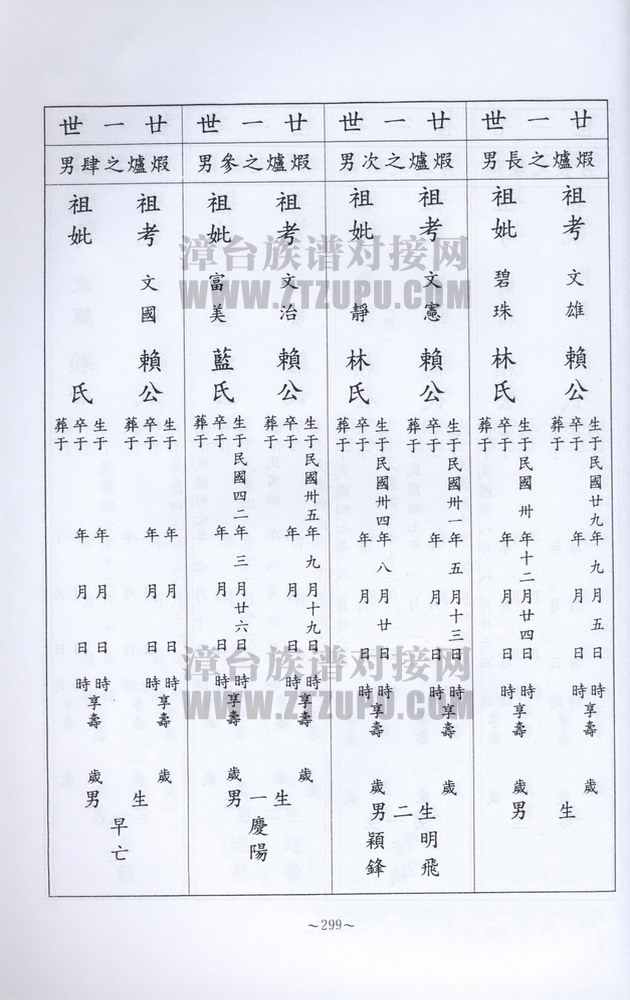 廿一世
煆爐之長男
祖考 文雄 賴公
生于民國廿九年九月五日時享壽歲
卒于年月日時
葬于
祖妣 碧珠 林氏
生于民國卅年十二月廿四日時享壽歲
卒于年月日時
葬于
生男
廿一世
煆爐之次男
祖考 文憲 賴公
生于民國卅一年五月十三日時享壽歲
卒于年月日時
葬于
祖妣 靜 林氏
生于民國卅四年八月廿日時享壽歲
卒于年月日時
葬于
生二男
明飛
穎鋒
廿一世
煆爐之參男
祖考 文治 賴公
生于民國卅五年九月十九日時享壽歲
卒于年月日時
葬于
祖妣 富美 藍氏
生于民國四二年三月廿六日時享壽歲
卒于年月日時
葬于
生一男
慶陽
廿一世
煆爐之肆男
祖考 文國 賴公
生于年月日時享壽歲
卒于年月日時
葬于
祖妣 氏
生于年月日時享壽歲
卒于年月日時
葬于
生男
早亡
~299~
漳台族谱对接网
WWW.ZTZUPU.COM
漳台族谱对接网
WWW.ZTZUPU.COM